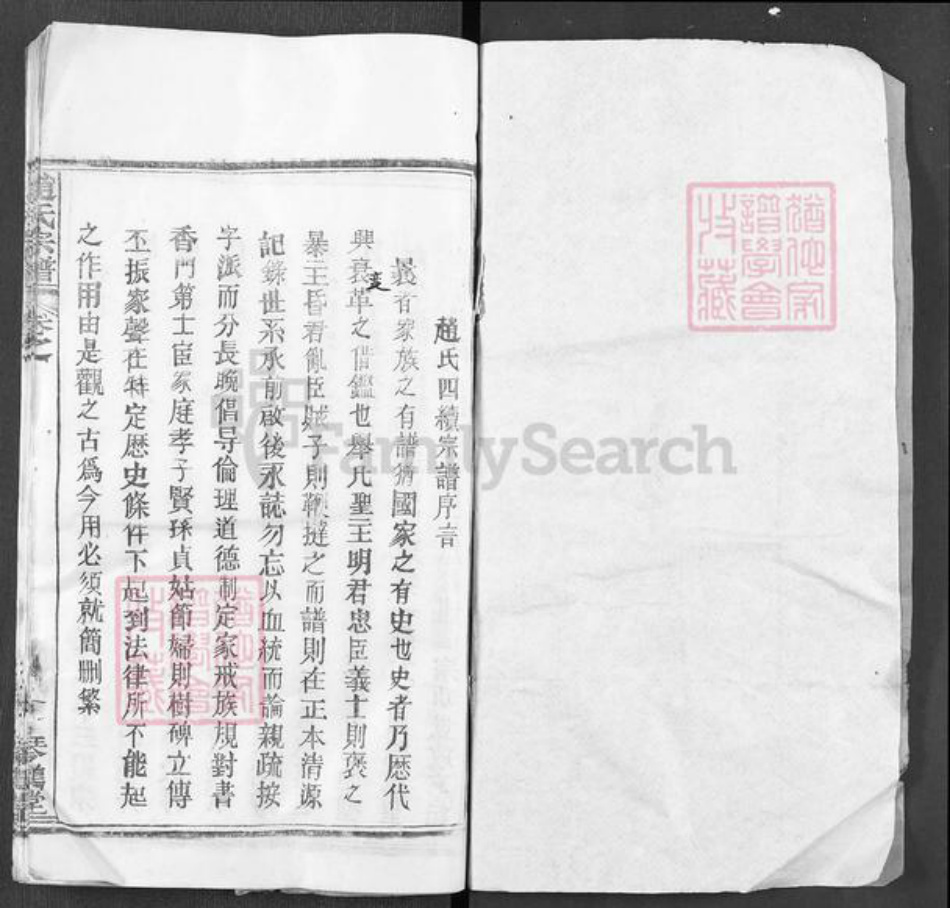 趙氏四續宗譜序言
曩者家族之有譜猶國家之有史也史者乃歷代
興衰变革之借鑑也舉凡聖王明君忠臣義士則褒之
暴王昏君亂臣賊子則鞭撻之而譜則在正本清源
記錄世系承前啟後永誌勿忘以血統而論親疏按
字派而分長晚倡导倫理道德制定家戒族規對書
香門第士宦家庭孝子賢孫貞姑節婦則樹碑立傳
丕振家聲在特定歷史條件下起到法律所不能起
之作用由是觀之古爲今用必須就簡删繁
趙氏宗譜
卷之
琴鶴堂
猶他家
譜學會
收藏
猶他家
譜學會
收藏
FamilySearch